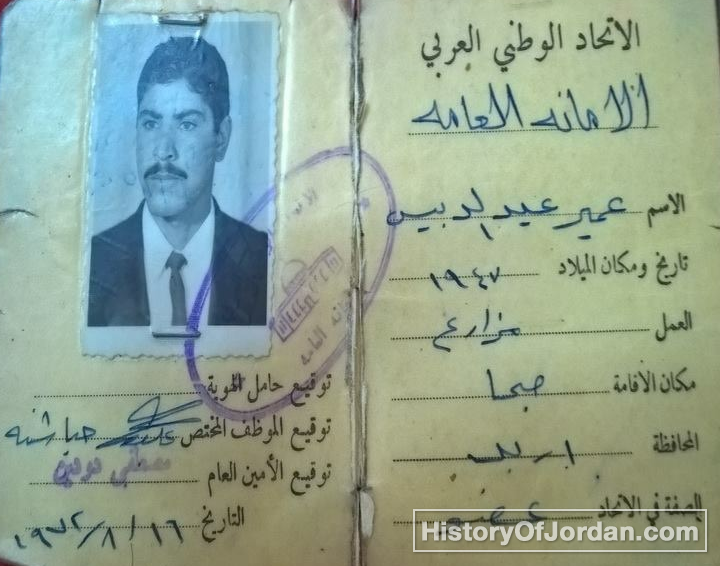 الاتحاد الوطني العربي
الامانه العامه
الاسم عمير عيد الدبيس
تاريخ ومكان الميلاد ١٩٤٧
العمل مزارع
مكان الاقامة صبحا
المحافظة اربد
الصفة في الاتحاد عضو
توقيع حامل الهوية
توقيع الموظف المختص
توقيع الأمين العام مصطفى دودين
التاريخ ١٦ / ٨ / ١٩٧٢
HistoryOfJordan.com